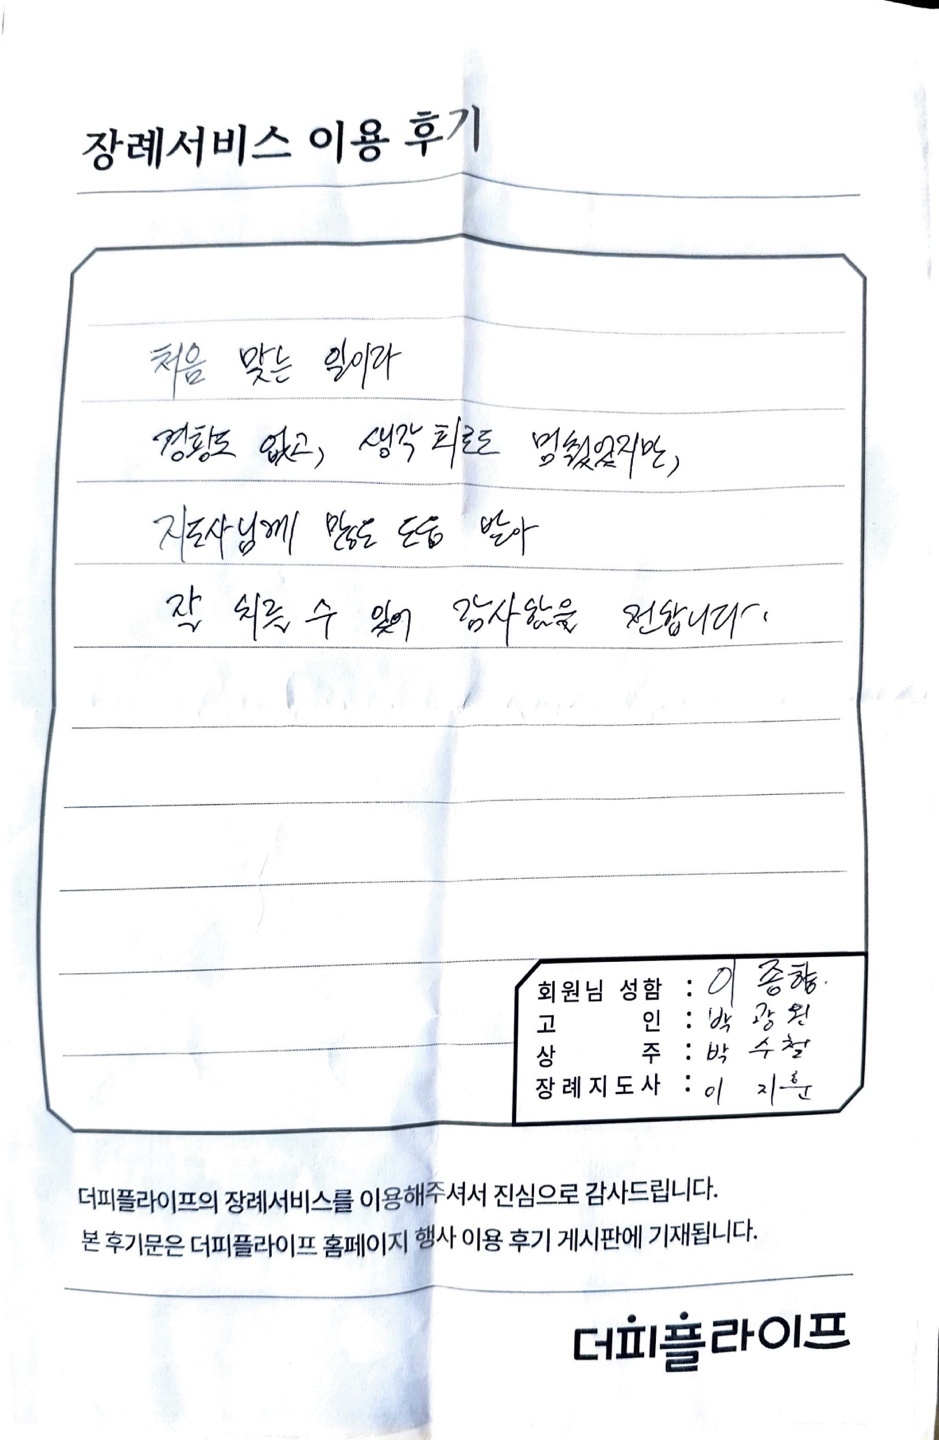 장례서비스 이용 후기
처음 맞는 일이라
경황도 없고, 생각 회로도 멈췄었지만,
지도사님께 많은 도움 받아
잘 치를 수 있어 감사함을 전합니다.
회원님 성함 : 이종향.
고 인 : 박광원
상 주 : 박수철
장례지도사 : 이지훈
더피플라이프의 장례서비스를 이용해주셔서 진심으로 감사드립니다.
본 후기문은 더피플라이프 홈페이지 행사 이용 후기 게시판에 기재됩니다.
더피플라이프